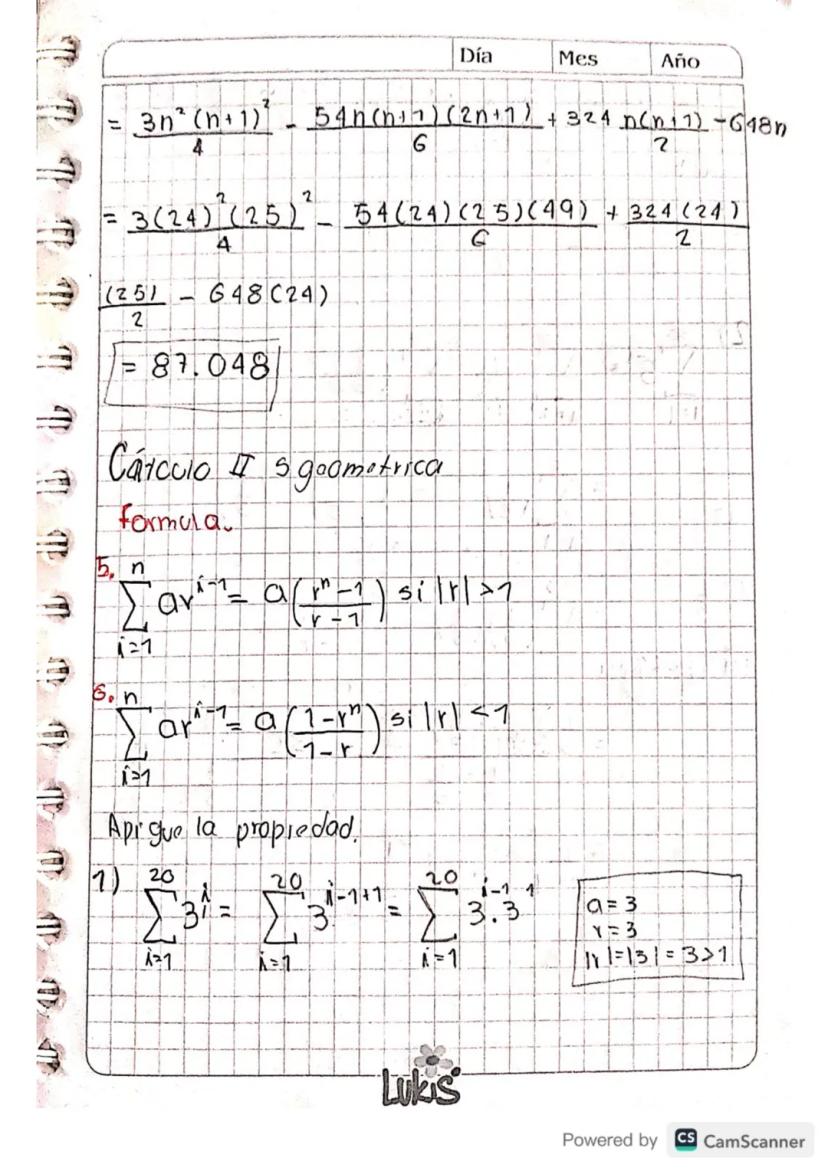 Día Mes Año
= 3n²(n+1)²/4 - 54n(n+1)(2n+1)/6 + 324 n(n+1)/2 - 648n
= 3(24)²(25)²/4 - 54(24)(25)(49)/6 + 324(24)/2
(25)/2 - 648(24)
= 87.048
Cálculo II S geometrica
formula.
5. n∑i=1 ar^(i-1) = a((r^n - 1)/(r - 1)) si |r| > 1
6. n∑i=1 ar^(i-1) = a((1 - r^n)/(1 - r)) si |r| < 1
Aplique la propiedad.
1) 20∑i=1 3^i = 20∑i=1 3^(i-1+1) = 20∑i=1 3.3^(i-1) 1
a = 3
r = 3
|r| = |3| = 3 > 1
Lukis
Powered by CS CamScanner